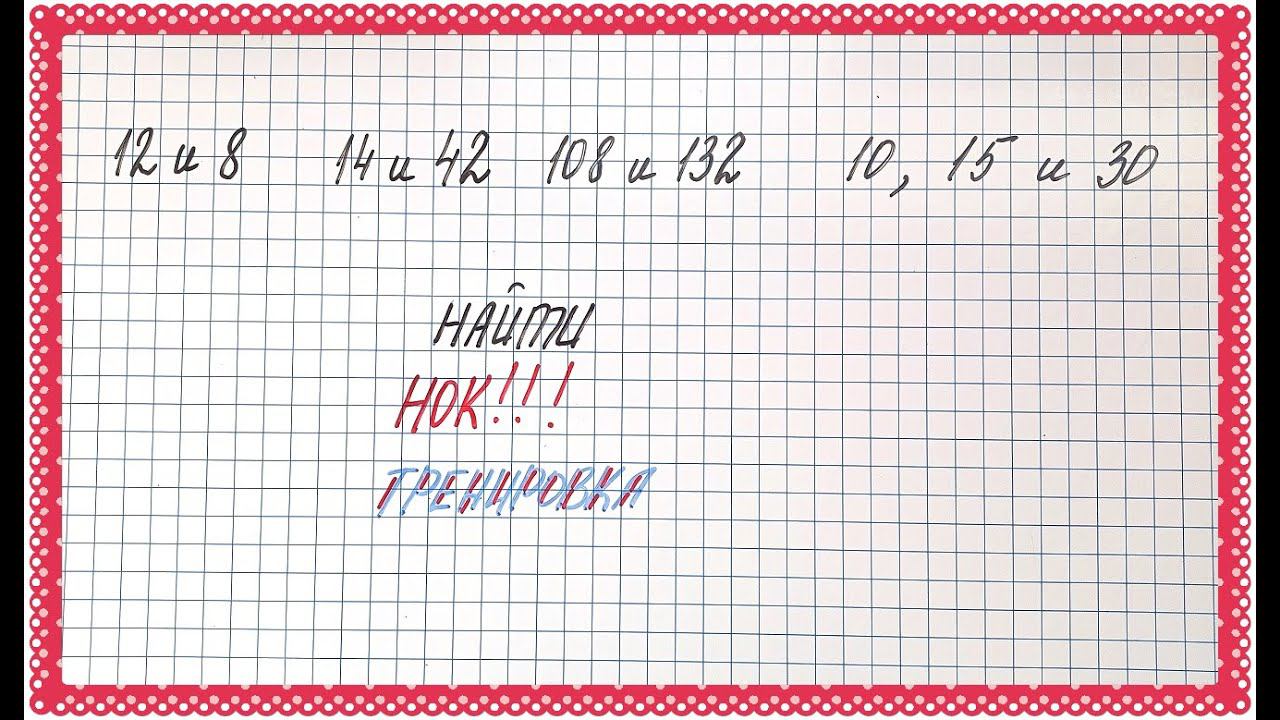 12 и 8 14 и 42 108 и 132 10, 15 и 30
НАЙТИ
НОК!!!
ТРЕНИРОВКА